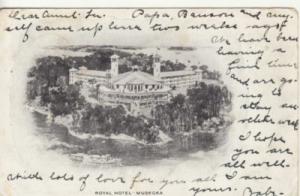 Dear Aunt Lu. Papa, Benson and my-
self came up here two weeks ago
We have been
having a
fine time
and are
going
to
stay
I hope
you are
all well.
With lots of love for you all I am
yours.
ROYAL HOTEL - MUSKOKA